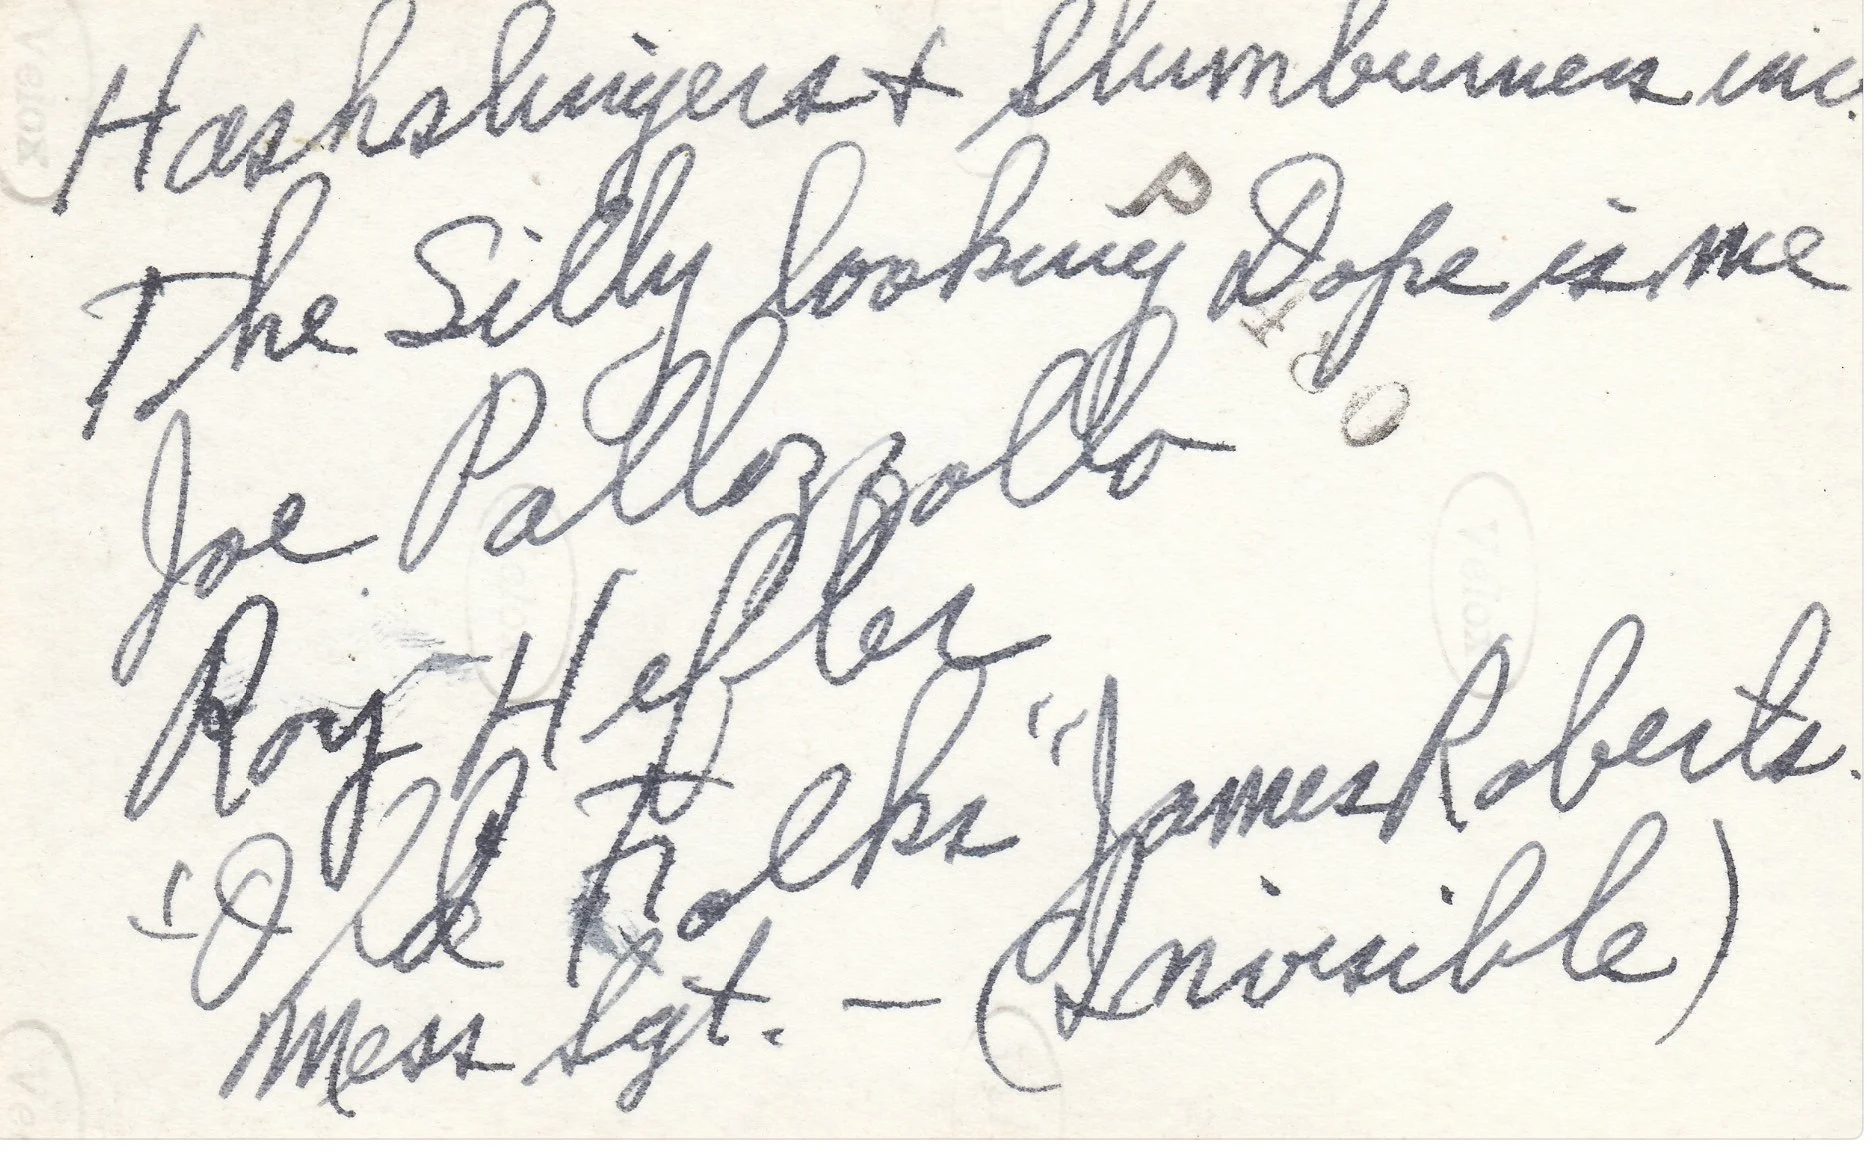 Hashslingers & Slumburners inc.
The Silly looking Dope is me
Joe Pallozzollo
Roy Hefler
"Old Folks" James Roberts.
Mess Sgt. — (Invisible)
Velox
Velox